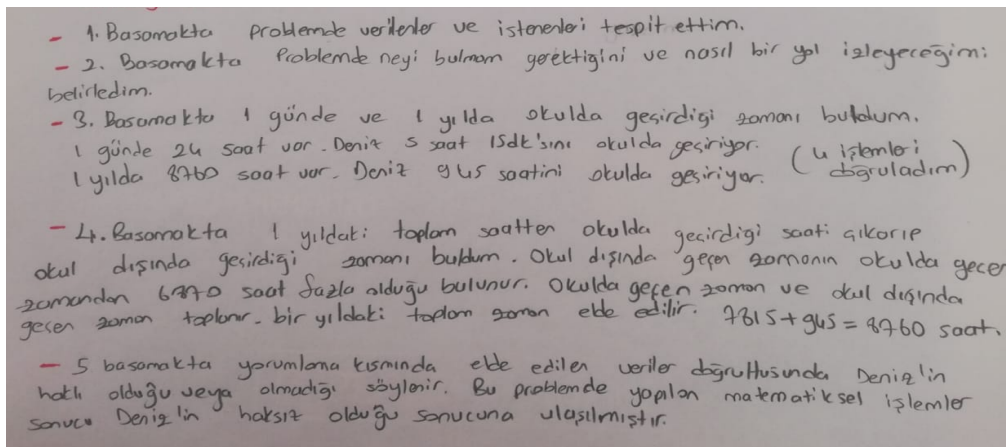 - 1. Basamakta problemde verilenler ve istenenleri tespit ettim.
- 2. Basamakta Problemde neyi bulmam gerektiğini ve nasıl bir yol izleyeceğimi
belirledim.
- 3. Basamakta 1 günde ve 1 yılda okulda geçirdiği zamanı buldum.
1 günde 24 saat var. Deniz 5 saat 15dk'sını okulda geçiriyor.
1 yılda 8760 saat var. Deniz 945 saatini okulda geçiriyor. (4 işlemleri doğruladım)
- 4. Basamakta 1 yıldaki toplam saatten okulda geçirdiği saati çıkarıp
okul dışında geçirdiği zamanı buldum. Okul dışında geçen zamanın okulda geçen
zamandan 6870 saat fazla olduğu bulunur. Okulda geçen zaman ve okul dışında
geçen zaman toplanır. bir yıldaki toplam zaman elde edilir. 7815+945=8760 saat.
- 5 basamakta yorumlama kısmında elde edilen veriler doğrultusunda Deniz'in
haklı olduğu veya olmadığı söylenir. Bu problemde yapılan matematiksel işlemler
sonucu Deniz'in haksız olduğu sonucuna ulaşılmıştır.